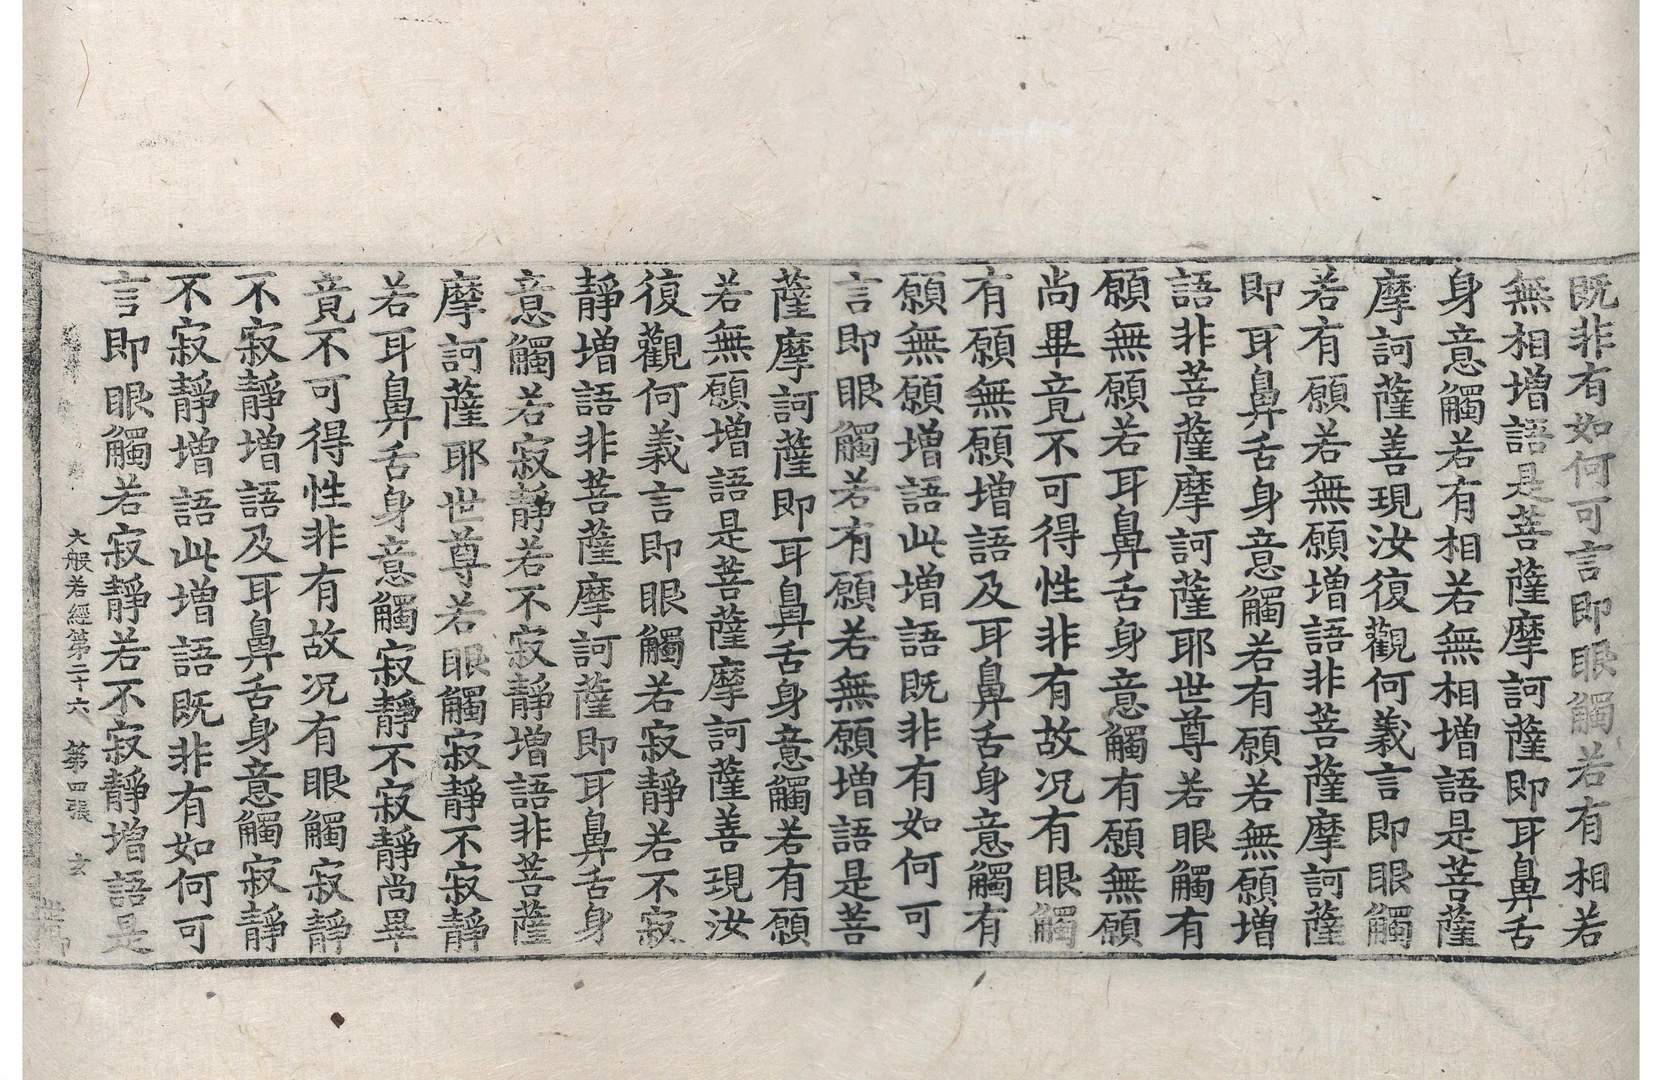 既非有如何可言即眼觸若有相若
無相增語是菩薩摩訶薩即耳鼻舌
身意觸若有相若無相增語是菩薩
摩訶薩善現汝復觀何義言即眼觸
若有願若無願增語非菩薩摩訶薩
即耳鼻舌身意觸若有願若無願增
語非菩薩摩訶薩耶世尊若眼觸有
願無願若耳鼻舌身意觸有願無願
尚畢竟不可得性非有故况有眼觸
有願無願增語及耳鼻舌身意觸有
願無願增語此增語既非有如何可
言即眼觸若有願若無願增語是菩
薩摩訶薩即耳鼻舌身意觸若有願
若無願增語是菩薩摩訶薩善現汝
復觀何義言即眼觸若寂靜若不寂
靜增語非菩薩摩訶薩即耳鼻舌身
意觸若寂靜若不寂靜增語非菩薩
摩訶薩耶世尊若眼觸寂靜不寂靜
若耳鼻舌身意觸寂靜不寂靜尚畢
竟不可得性非有故况有眼觸寂靜
不寂靜增語及耳鼻舌身意觸寂靜
不寂靜增語此增語既非有如何可
言即眼觸若寂靜若不寂靜增語是
大般若經第二十六 第四張 玄